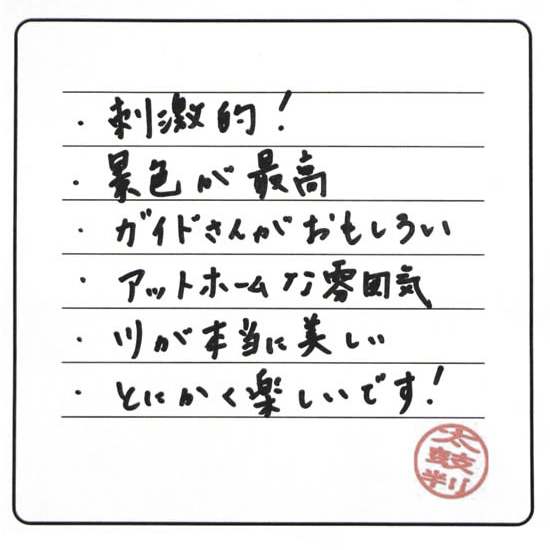 ・刺激的！
・景色が最高
・ガイドさんがおもしろい
・アットホームな雰囲気
・川が本当に美しい
・とにかく楽しいです！
太
鼓
判